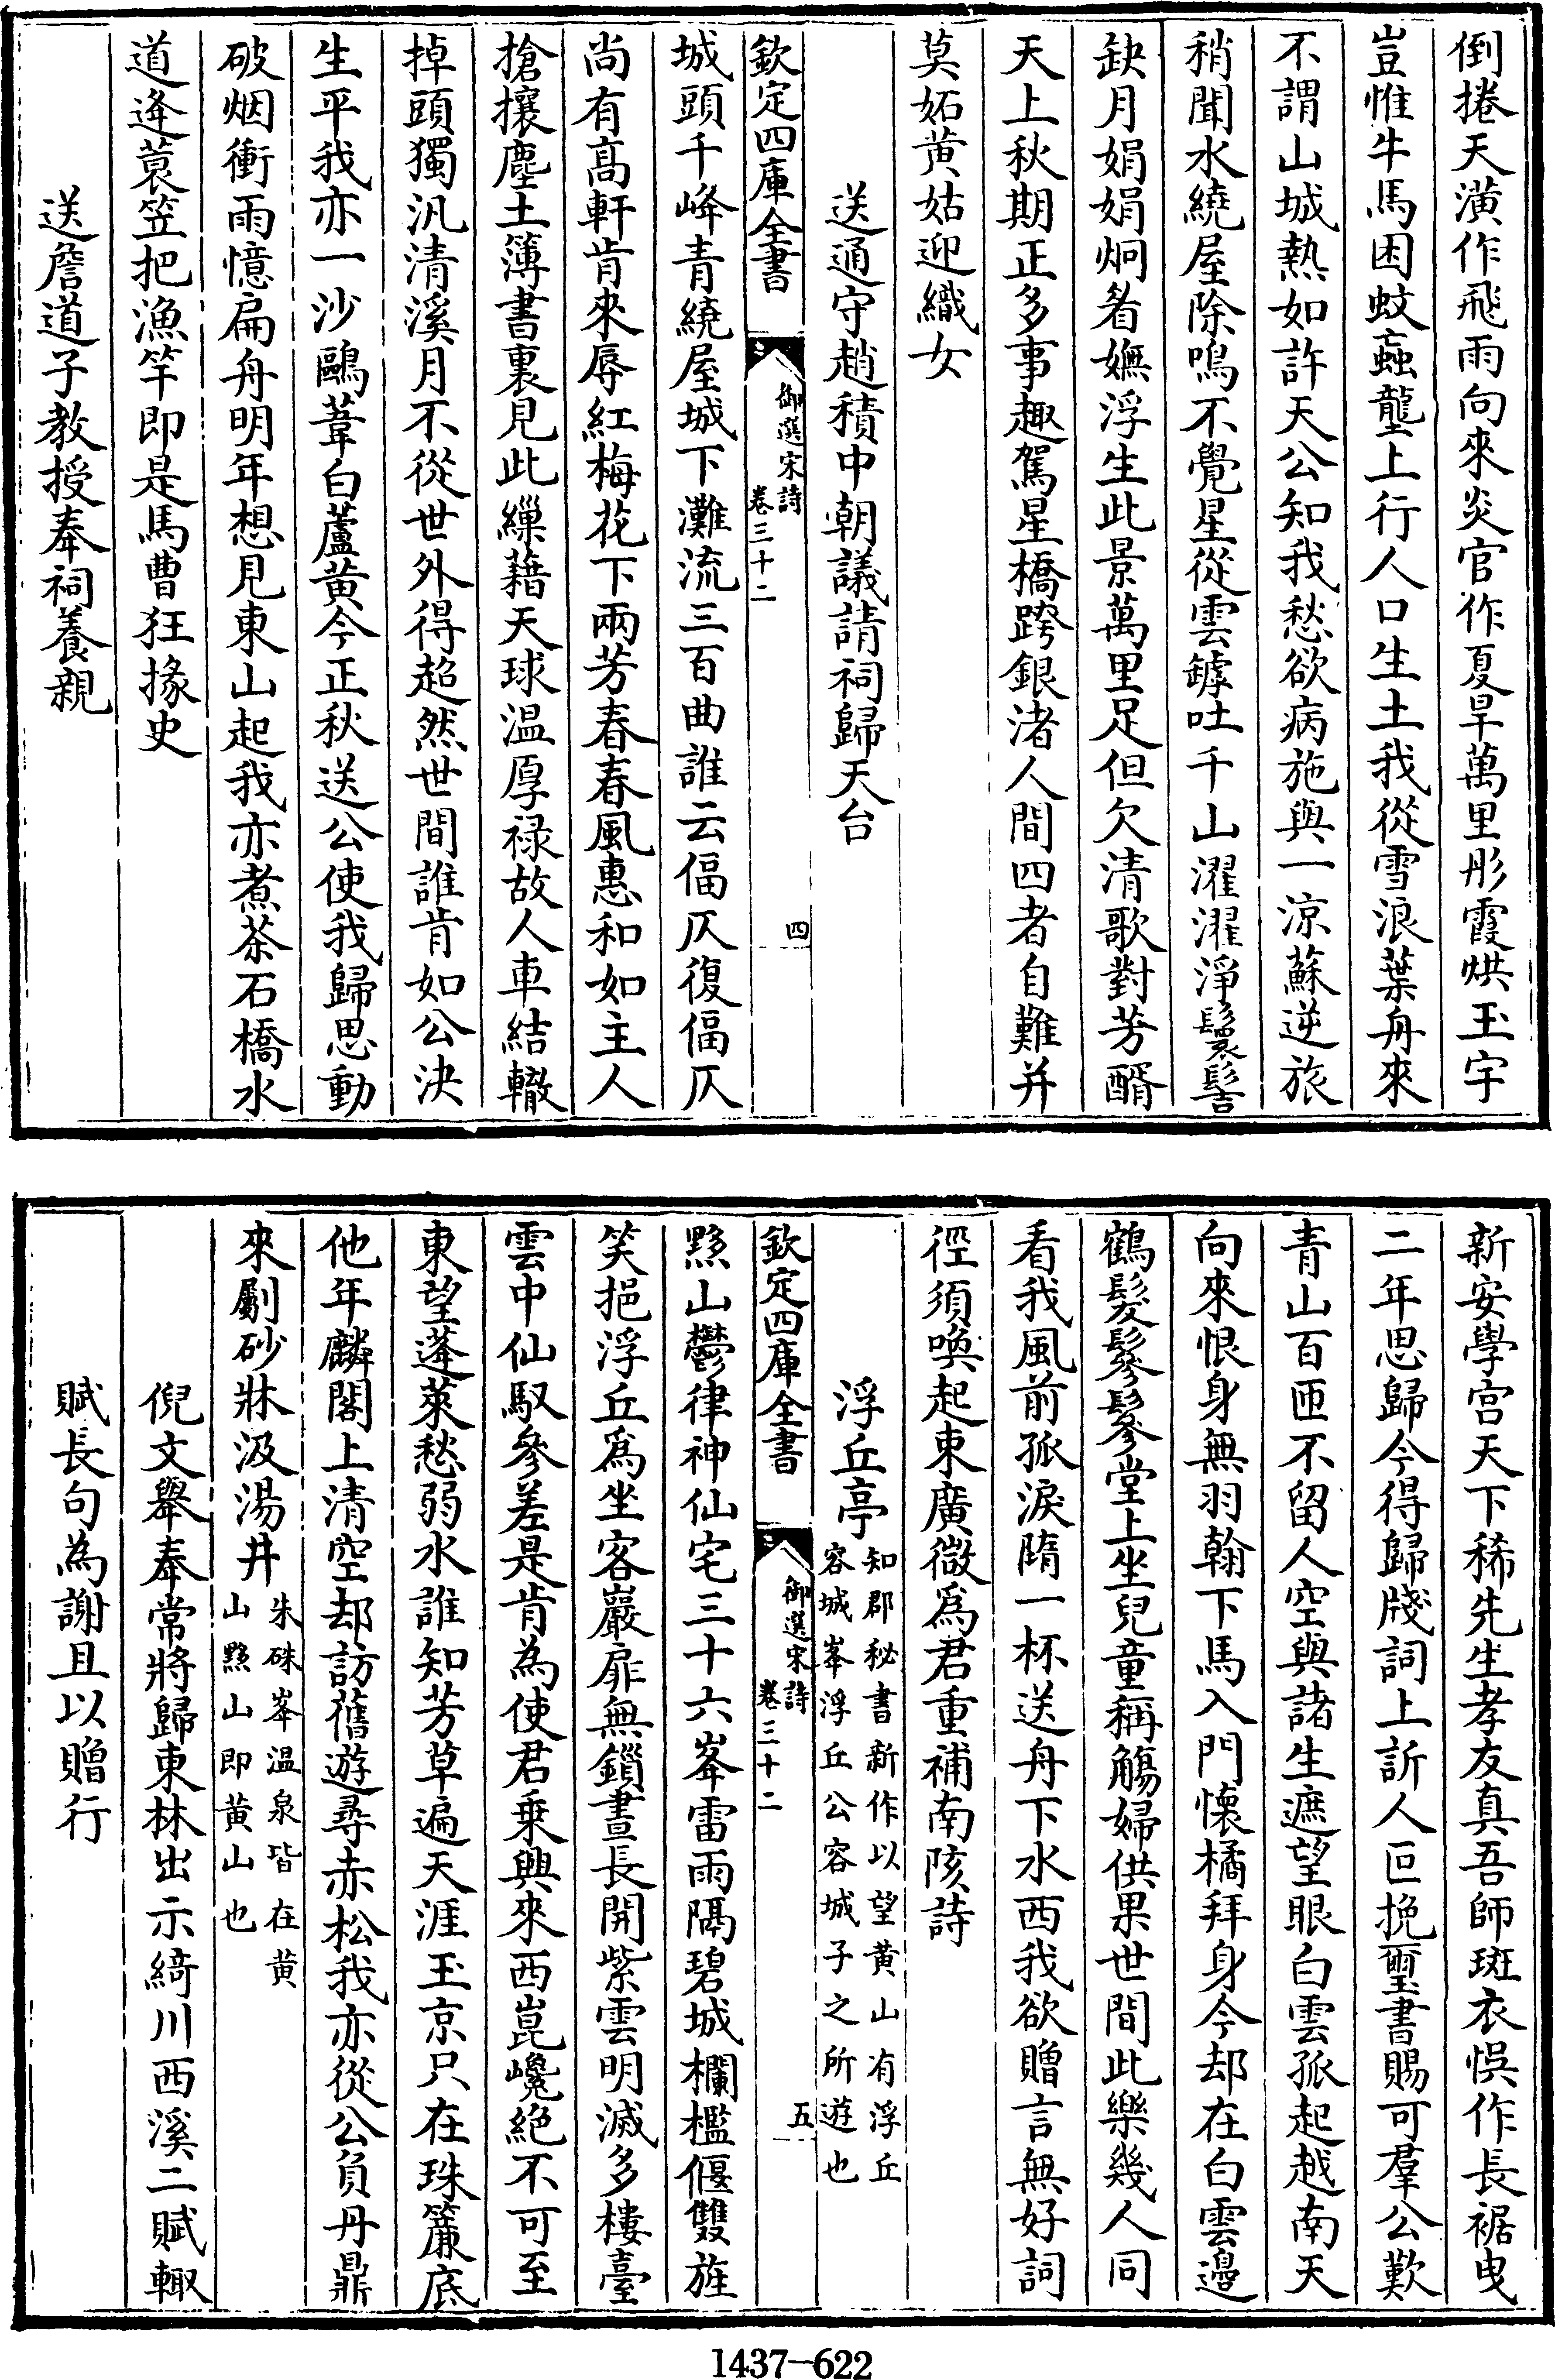 倒捲天潢作飛雨向來炎官作夏旱萬里彤霞烘玉宇
豈惟牛馬困蚊蝱壟上行人口生土我從雪浪葉舟來
不謂山城熱如許天公知我愁欲病施與一涼蘇逆旅
稍聞水繞屋除鳴不覺星從雲罅吐千山濯濯淨鬟髻
缺月娟娟炯眉嫵浮生此景萬里足但欠清歌對芳醑
天上秋期正多事趣駕星橋跨銀渚人間四者自難并
莫妬黄姑迎織女
送通守趙積中朝議請祠歸天台
欽定四庫全書
御選宋詩
卷三十二
四
城頭千峰青繞屋城下灘流三百曲誰云偪仄復偪仄
尚有髙軒肯來辱紅梅花下兩芳春春風惠和如主人
搶攘塵土簿書裏見此繅藉天球温厚禄故人車結轍
掉頭獨汎清溪月不從世外得超然世間誰肯如公決
生平我亦一沙鷗葦白蘆黄今正秋送公使我歸思動
破烟衝雨憶扁舟明年想見東山起我亦煮茶石橋水
道逄蓑笠把漁竿即是馬曹狂掾史
送詹道子教授奉祠養親
新安學宫天下稀先生孝友真吾師斑衣悮作長裾曳
二年思歸今得歸牋詞上訢人叵挽璽書賜可羣公歎
青山百匝不留人空與諸生遮望眼白雲孤起越南天
向來恨身無羽翰下馬入門懷橘拜身今却在白雲邊
鶴髮鬖鬖堂上坐兒童稱觴婦供果世間此樂幾人同
看我風前孤淚隋一杯送舟下水西我欲贈言無好詞
徑須喚起束廣微爲君重補南陔詩
浮丘亭
知郡秘書新作以望黄山有浮丘
容城峯浮丘公容城子之所遊也
欽定四庫全書
御選宋詩
卷三十二
五
黟山鬱律神仙宅三十六峯雷雨隔碧城欄檻偃雙旌
笑挹浮丘爲坐客巖扉無鎻晝長開紫雲明滅多樓臺
雲中仙馭參差是肯為使君乘興來西崑巉絶不可至
東望蓬萊愁弱水誰知芳草遍天涯玉京只在珠簾底
他年麟閣上清空却訪舊遊尋赤松我亦從公負丹鼎
來劚砂牀汲湯井
朱硃峯温泉皆在黄
山黟山即黄山也
倪文舉奉常將歸東林出示綺川西溪二賦輙
賦長句為謝且以贈行
1437—622